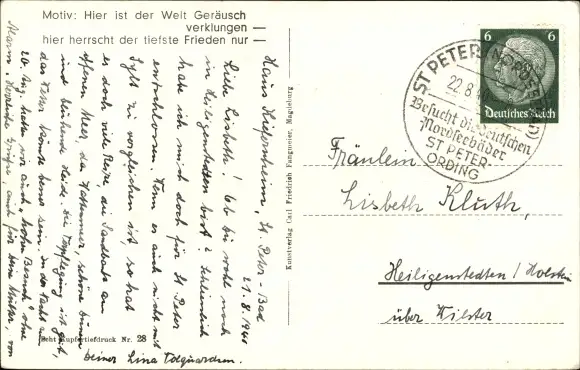 Motiv: Hier ist der Welt Geräusch
verklungen
hier herrscht der tiefste Frieden nur
Haus Kiefernheim, St. Peter-Bad
21.8.1940
Liebe Lisbeth! Ob du wohl noch
in Heiligenstedten bist? Schliesslich
habe ich mich doch für St. Peter
entschlossen. Wenn es auch nicht mit
Sylt zu vergleichen ist, so hat
es doch viele Reize die Sandbank am
offenen Meer, das Wattenmeer, schöne Dünen
und blühende Heide. Die Verpflegung ist gut,
das Wetter könnte besser sein. In der Nacht zum
20. Aug. hatten wir auch "hohen Besuch" ohne
Alarm. Herzliche Grüße, auch für deine Mutter, von
deiner Lina
Echt Kupfertiefdruck Nr. 28
Kunstverlag Carl Friedrich Fangmeier, Magdeburg
6 6
Deutsches Reich
ST PETER (NORDSEEBAD)
22.8.
Besucht die deutschen
Nordseebäder
ST PETER-
ORDING
Fräulein
Lisbeth Kluth,
Heiligenstedten / Holstein
über Wilster